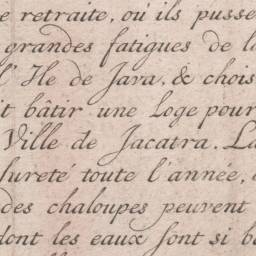 e retraite, où ils pusse
grandes fatigues de la
l'Ile de Java, & chois
t bâtir une Loge pour
Ville de Jacatra. La
sureté toute l'année,
des chaloupes peuvent
dont les eaux sont si ba